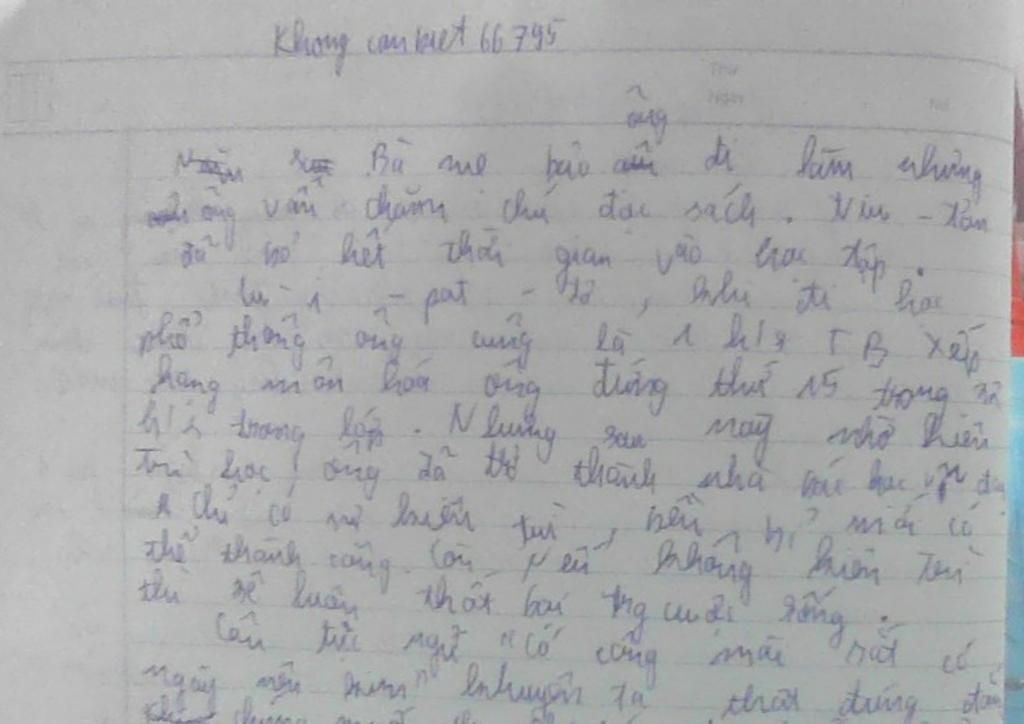 Khong can biet 66795
Thứ
Ngày
ông
Bà mẹ bảo đi làm nhưng
ông vẫn chăm chú đọc sách. Niu - tơn
đã bỏ hết thời gian vào học tập.
Lu - i - pat - tơ, khi đi học
phổ thông ông cũng là 1 h/s TB xếp
hạng môn hoá ông đứng thứ 15 trong 22
h/s trong lớp. Nhưng sau này nhờ kiên
trì học, ông đã trở thành nhà bác học vĩ đại
Chỉ có sự kiên trì, bền bỉ mới có
thể thành công. Còn nếu không kiên trì
thì sẽ luôn thất bại trg cuộc sống.
Câu tục ngữ "Có công mài sắt có
ngày nên kim" khuyên ta thật đúng đắn